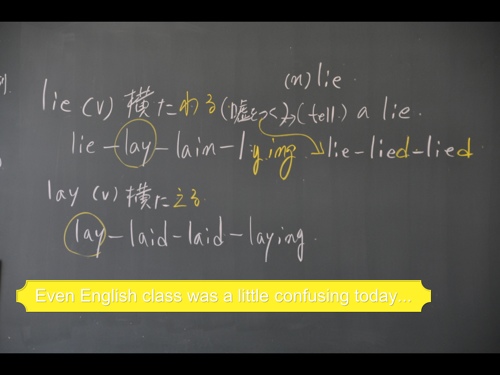 (n) lie
lie (v) 横たわる (嘘をつく) → (tell) a lie.
lie – lay – lain – lying lie – lied – lied
lay (v) 横たえる
lay – laid – laid – laying.
Even English class was a little confusing today...